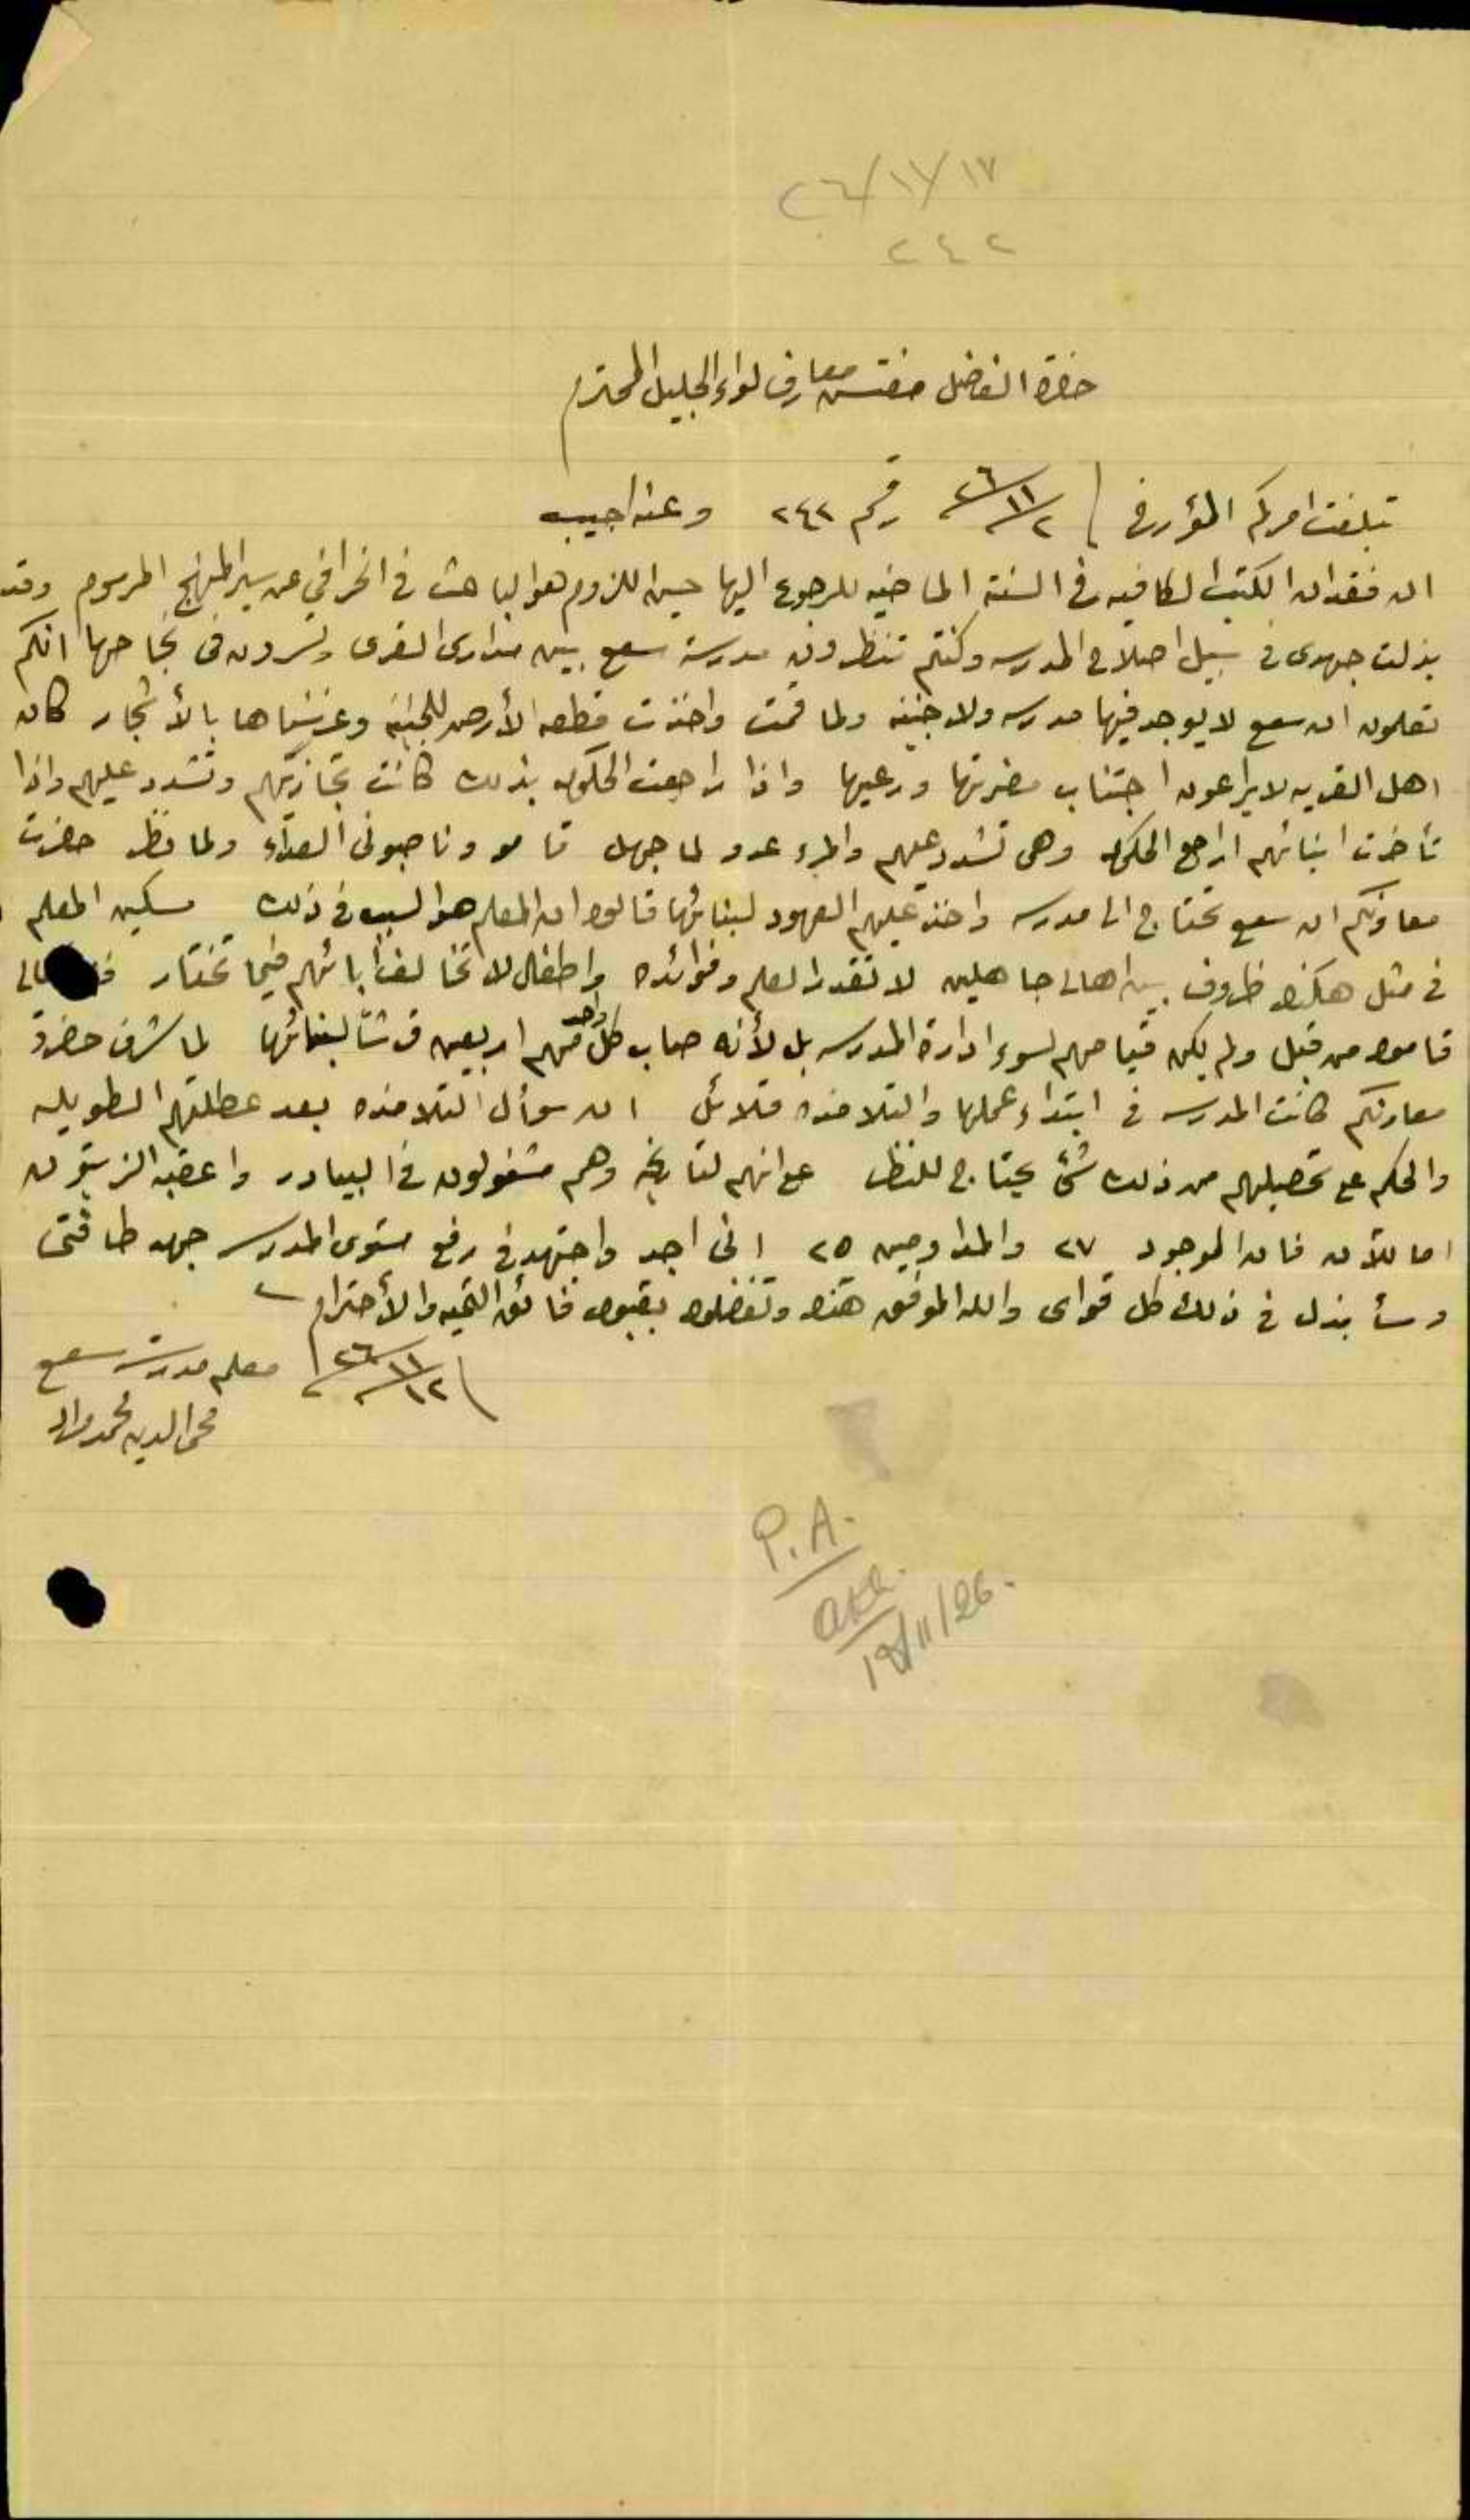 ٢٦/١١/١٧
٢٤٢
حضرة الفاضل مفتش معارف لواء الجليل المحترم
تبلغت امركم المؤرخ في ٢٦/١١/٢ رقم ٢٤٢ وعنه اجيب
ان فقدان الكتب الكافيه في السنة الماضيه للرجوع اليها حين اللزوم هو الباعث في انحرافي عن سير المنهج المرسوم وقد
بذلت جهدي في سبيل اصلاح المدرسه وكنتم تنظرون مدرسة سعسع بين مدارس القرى وتسرون في نجاحها انكم
تعلمون ان سعسع لا يوجد فيها مدرسه ولا جنينه ولما قمت واخذت قطعه الأرض للجنينة وغرسناها بالأشجار كان
اهل القريه لا يراعون اجتناب مضرتها ورعيها واذا راجعت الحكومه بذلك كانت تجازيهم وتشدد عليهم واذا
تأخرت ابنائهم اراجع الحكومه وهي تشدد عليهم والمرء عدو لما جهل قامو وناصبوني العداء ولما حضرت
معاونكم ان سعسع تحتاج الى مدرسه واخذ عليهم العهود لبنائها قالوا ان المعلم هو السبب في ذلك مسكين المعلم
في مثل هكذا ظروف بين اهالي جاهلين لا تقدر العلم وفوائده واطفال لا تخالف أبائهم فيما تختار
قاموا من قبل ولم يكن قيامهم لسوء ادارة المدرسه بل لأنه صاب كل واحد منهم اربعين قرشاً لبنائها لما شرف حضرة
معاونكم كانت المدرسه في ابتداء عملها والتلامذه قلائل ان سوأل التلامذه بعد عطلتهم الطويله
والحكم على تحصيلهم من ذلك شئ يحتاج للنظر على انهم لتاريخه وهم مشغولون في البيادر واعقبه الزيتون
اما للأن فان الموجود ٢٧ والمداومين ٢٥ اني اجد واجتهد في رفع مستوى المدرسه جهد طاقتي
وسأبذل في ذلك كل قواى والله الموفق هذا وتفضلوا بقبول فائق التحيه والأحترام
٢٦/١١/١٢ معلم مدرسة سعسع
محي الدين محمد
P.A.
19/11/26.